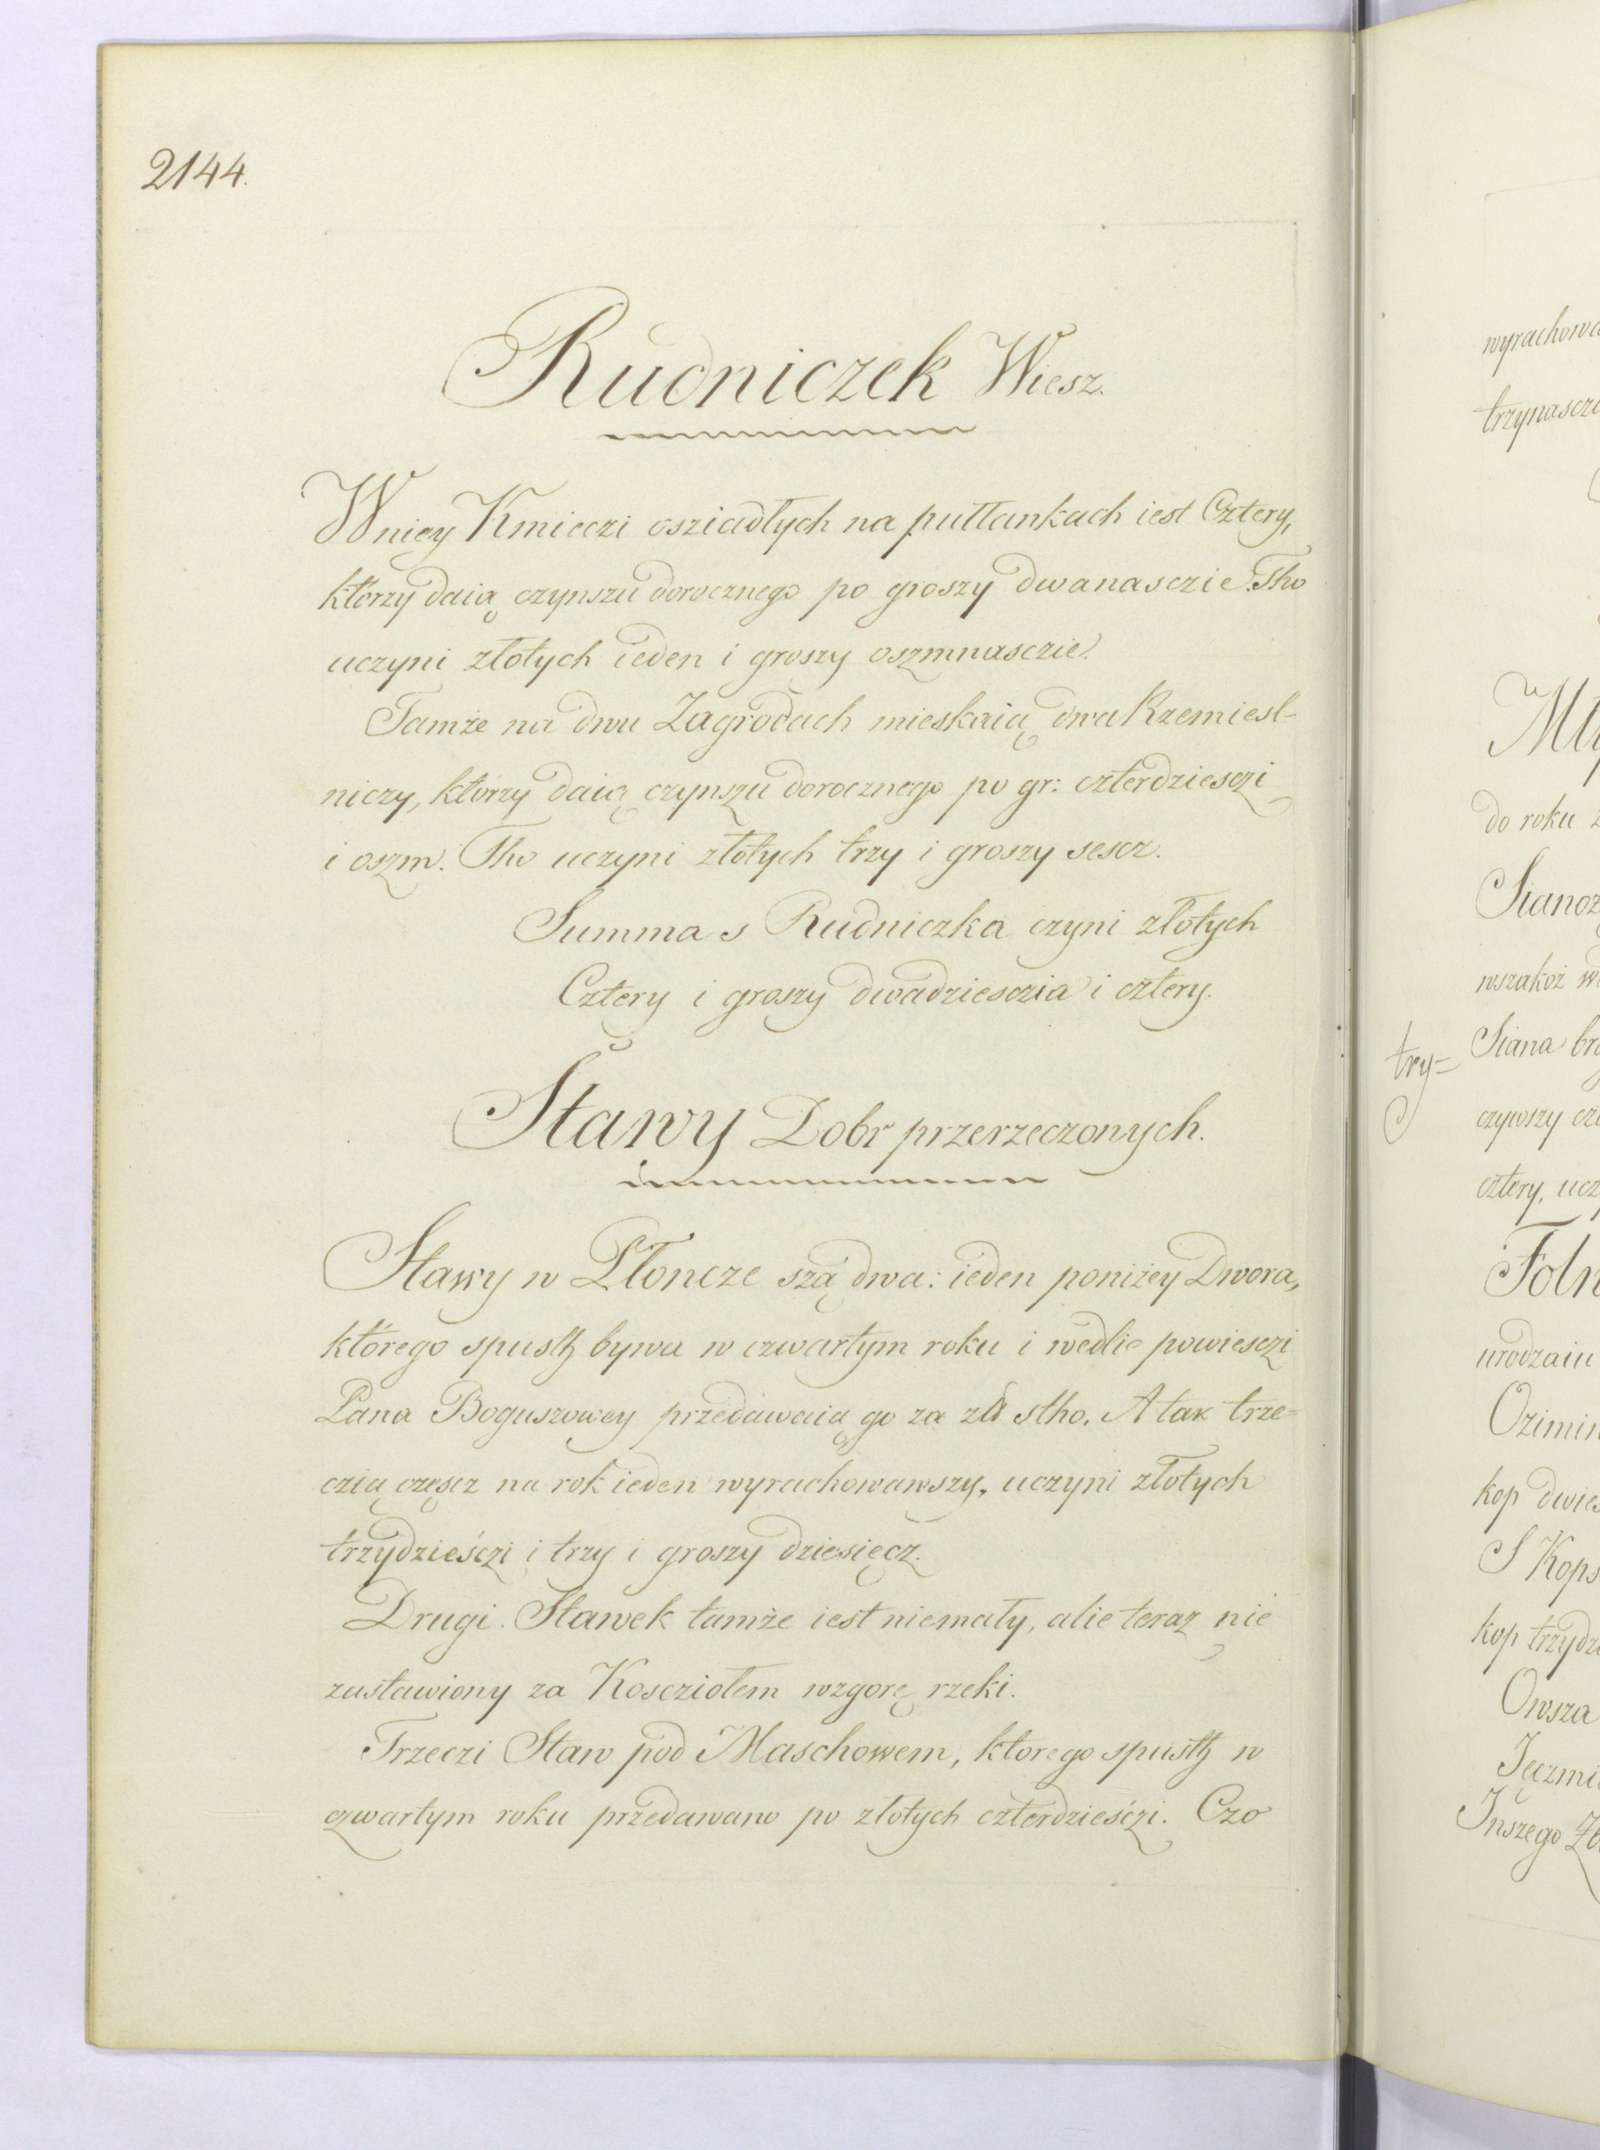 2144.
Rudniczek Wiesz.
W niey Kmieczi osziadłych na puttankach iest Cztery,
którzy daią czynszu dorocznego po groszy dwanasczie. Tho
uczyni złotych ieden i groszy oszmnasczie.
Tamże na dwu Zagrodach mieskaią dwa Rzemiesl-
niczy, którzy daią czynszu dorocznego po gr: czterdziesczi
i oszm. Tho uczyni złotych trzy i groszy sescz.
Summa s Rudniczka czyni złotych
Cztery i groszy dwadziesczia i cztery.
Stawy Dobr przerzeczonych.
Stawy w Płoncze szą dwa: ieden poniżey Dwora,
którego spustz bywa w czwartym roku i wedlie powiesczi
Pana Boguszowey przedawaią go za zł stho. A tak trze-
czią częscz na rok ieden wyrachowawszy, uczyni złotych
trzydzieśczi i trzy i groszy dziesięcz.
Drugi Stawek tamże iest niemały, alie teraz nie
zastawiony za Koscziołem wzgorę rzeki.
Trzeczi Staw pod Maschowem, ktorego spustz w
czwartym roku przedawano po złotych czterdzieśczi. Czo
trzynascz
try=
do roku
wszakoż
Siana
czywszy
cztery,
urodzaiu
kop
S Kop
kop
Owsza
Inszego